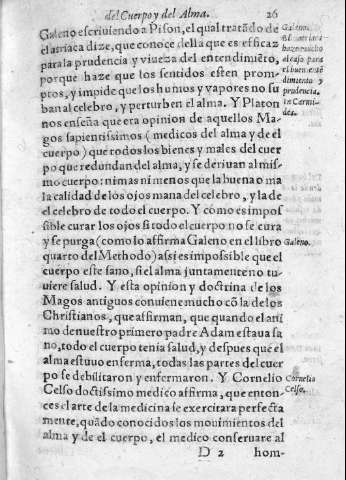 del Cuerpo y del Alma. 26
Galeno escriviendo a Pison, el qual tratādo de
el atriaca dize, que conoce della que es efficaz
para la prudencia y viueza del entendimiēto,
porque haze que los sentidos esten prom-
ptos, y impide que los humos y vapores no su
ban al celebro, y perturben el alma. Y Platon
nos enseña que era opinion de aquellos Ma-
gos sapientissimos (medicos del alma y de el
cuerpo) que todos los bienes y males del cuer
po que redundan del alma, y se deriuan al mis-
mo cuerpo: ni mas ni menos que la buena o ma
la calidad de los ojos mana del celebro, y la de
el celebro de todo el cuerpo. Y cómo es impos
sible curar los ojos si todo el cuerpo no se cura
y se purga (como lo affirma Galeno en el libro
quarto del Methodo) assi es impossible que el
cuerpo este sano, si el alma juntamente no tu-
uiere salud. Y esta opinion y doctrina de los
Magos antiguos conuiene mucho cō la de los
Christianos, que affirman, que quando el ani
mo de nuestro primero padre Adam estaua sa
no, todo el cuerpo tenia salud, y despues que el
alma estuuo enferma, todas las partes del cuer
po se debilitaron y enfermaron. Y Cornelio
Celso doctissimo medico affirma, que enton-
ces el arte de la medicina se exercitara perfecta
mente, quādo conocidos los mouimientos del
alma y de el cuerpo, el medico conseruare al
D 2 hom-
Galeno.
El atriaca
haze mucho
al caso para
el buen entē
dimiento y
prudencia.
in Carmi-
des.
Galeno.
Cornelio
Celso.